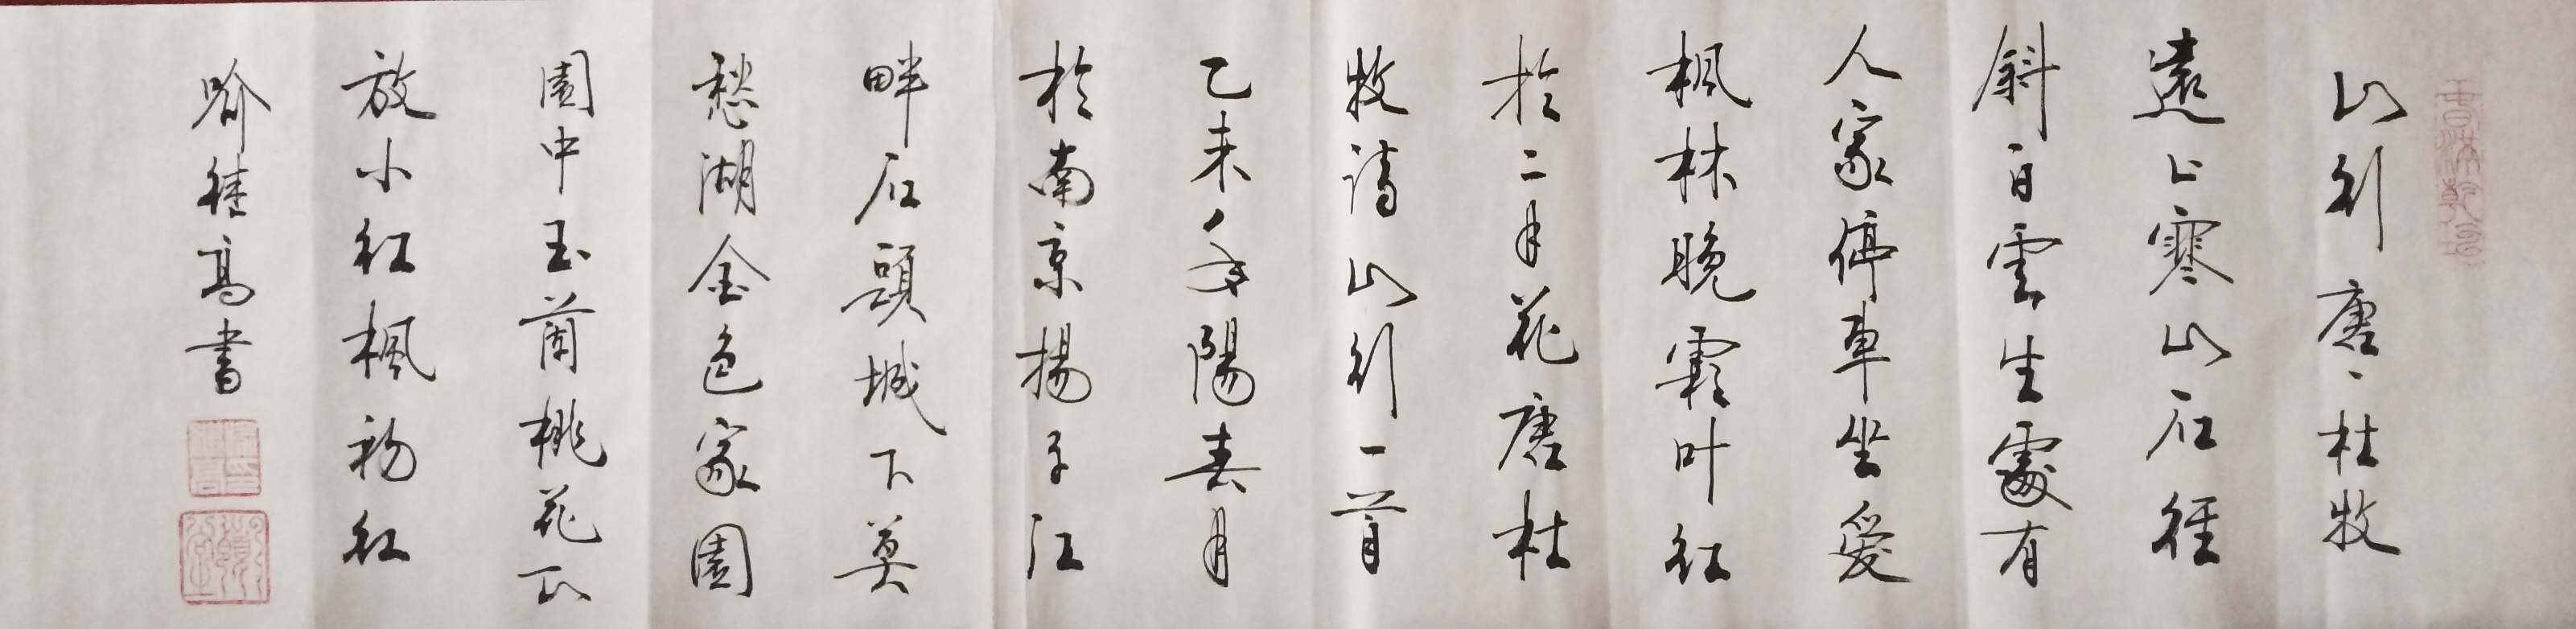 山行唐、杜牧
遠上寒山石徑
斜白雲生處有
人家停車坐愛
枫林晚霜叶红
於二月花唐杜
牧詩山行一首
乙未年陽春月
於南京揚子江
畔石頭城下莫
愁湖金色家園
園中玉蘭桃花正
放小红枫初红
高書